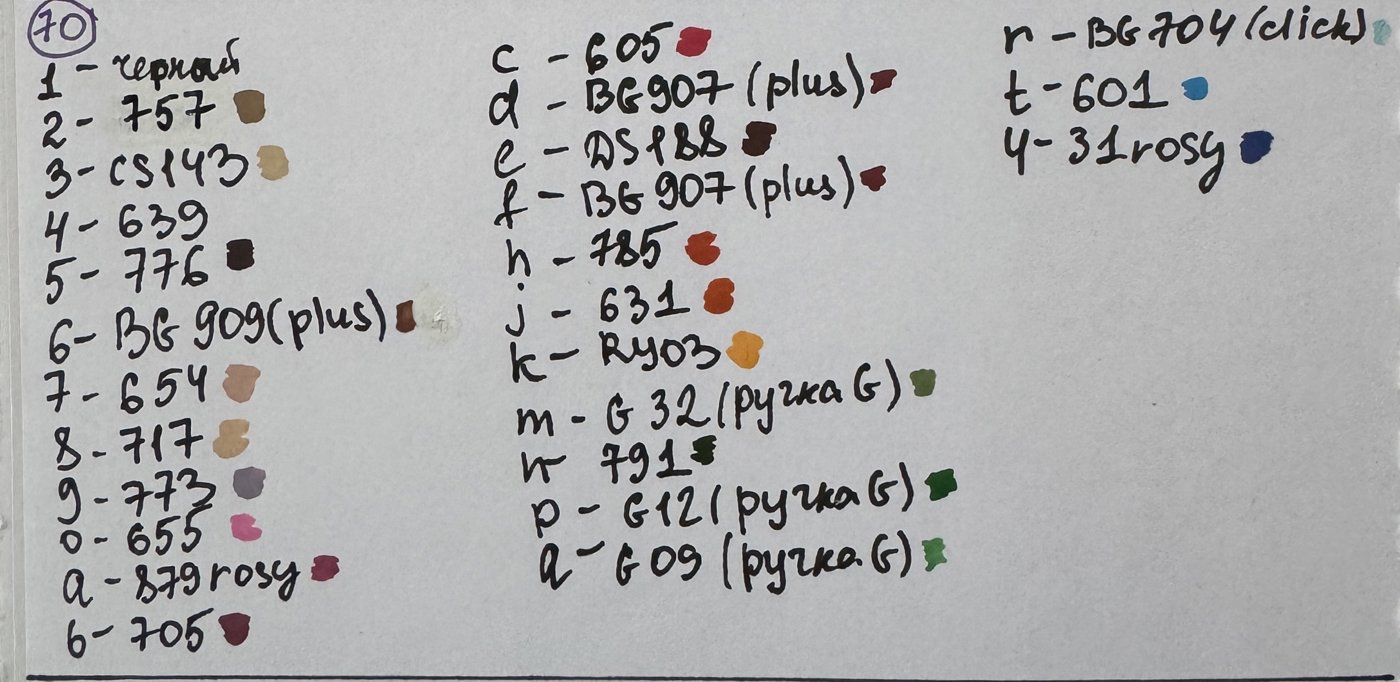 70
1 - черный
2 - 757
3 - CS143
4 - 639
5 - 776
6 - BG 909 (plus)
7 - 654
8 - 717
9 - 773
0 - 655
a - 879 rosy
b - 705
c - 605
d - BG907 (plus)
e - DS188
f - BG 907 (plus)
h - 785
j - 631
k - RY03
m - G 32 (ручка G)
n - 791
p - G12 (ручка G)
q - G 09 (ручка G)
r - BG 704 (click)
t - 601
y - 31 rosy